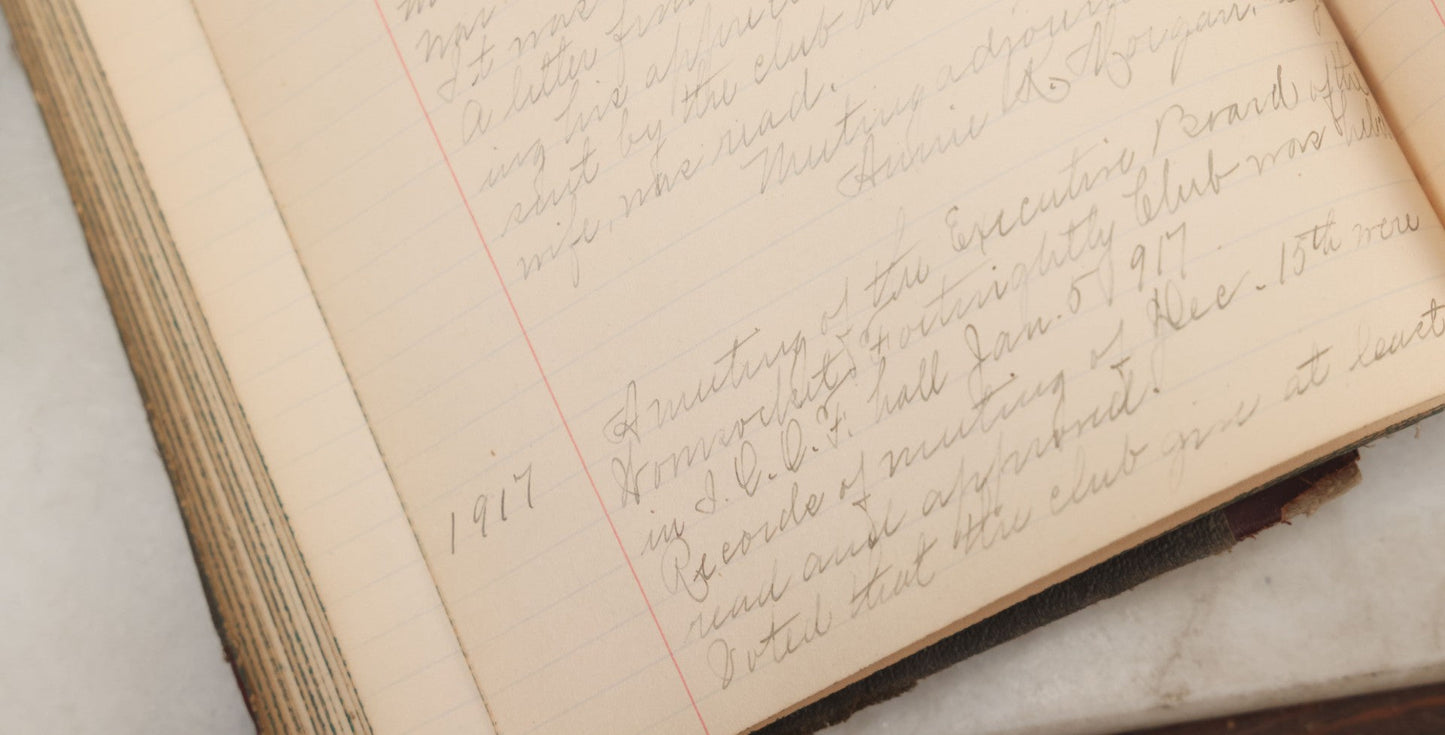 It was
A letter from
ing his appre
sent by the club
wife, was read.
Meeting adjourn
Annie K. Morgan,
A meeting of the Executive Board of the
Woonsocket Fortnightly Club was held
in I.O.O.F. hall Jan. 5 1917
1917
Records of meeting of Dec. 15th were
read and approved.
Voted that the club give at least